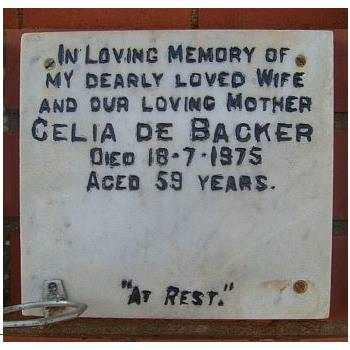 In Loving Memory of
my dearly loved Wife
and our loving Mother
Celia de Backer
Died 18-7-1975
Aged 59 years.
"At Rest."